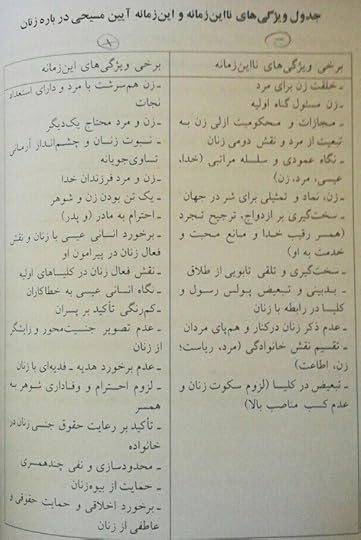 جدول ویژگی‌های نااین‌زمانه و این‌زمانه آیین مسیحی درباره زنان
برخی ویژگی‌های نااین‌زمانه
ـ خلقت زن برای مرد
ـ زن مسئول گناه اولیه
ـ مجازات و محکومیت ازلی زن به
تبعیت از مرد و نقش دومی زنان
ـ نگاه عمودی و سلسله مراتبی (خدا،
عیسی، مرد، زن)
ـ زن، نماد و تمثیلی برای شر در جهان
ـ سخت‌گیری بر ازدواج، ترجیح تجرد
(همسر رقیب خدا و مانع محبت و
خدمت به او)
ـ سخت‌گیری و تلقی تابویی از طلاق
ـ بدبینی و تبعیض پولس رسول و
کلیسا در رابطه با زنان
ـ عدم ذکر زنان درکنار و هم‌پای مردان
ـ تقسیم نقش خانوادگی (مرد، ریاست؛
زن، اطاعت)
ـ تبعیض در کلیسا (لزوم سکوت زنان و
عدم کسب مناصب بالا)
برخی ویژگی‌های این‌زمانه
ـ زن هم‌سرشت با مرد و دارای استعداد
نجات
ـ زن و مرد محتاج یک‌دیگر
ـ نبوت زنان و چشم‌انداز آرمانی
تساوی‌جویانه
ـ زن و مرد فرزندان خدا
ـ یک تن بودن زن و شوهر
ـ احترام به مادر (و پدر)
ـ برخورد انسانی عیسی با زنان و نقش
فعال زنان در پیرامون او
ـ نقش فعال زنان در کلیساهای اولیه
ـ نگاه انسانی عیسی به خطاکاران
ـ کم‌رنگی تأکید بر پسران
ـ عدم تصویر جنسیت‌محور و زایشگر
از زنان
ـ عدم برخورد هدیه ـ فدیه‌ای با زنان
ـ لزوم احترام و وفاداری شوهر به
همسر
ـ تأکید بر رعایت حقوق جنسی زنان در
خانواده
ـ محدودسازی و نفی چندهمسری
ـ حمایت از بیوه‌زنان
ـ برخورد اخلاقی و حمایت حقوقی و
عاطفی از زنان